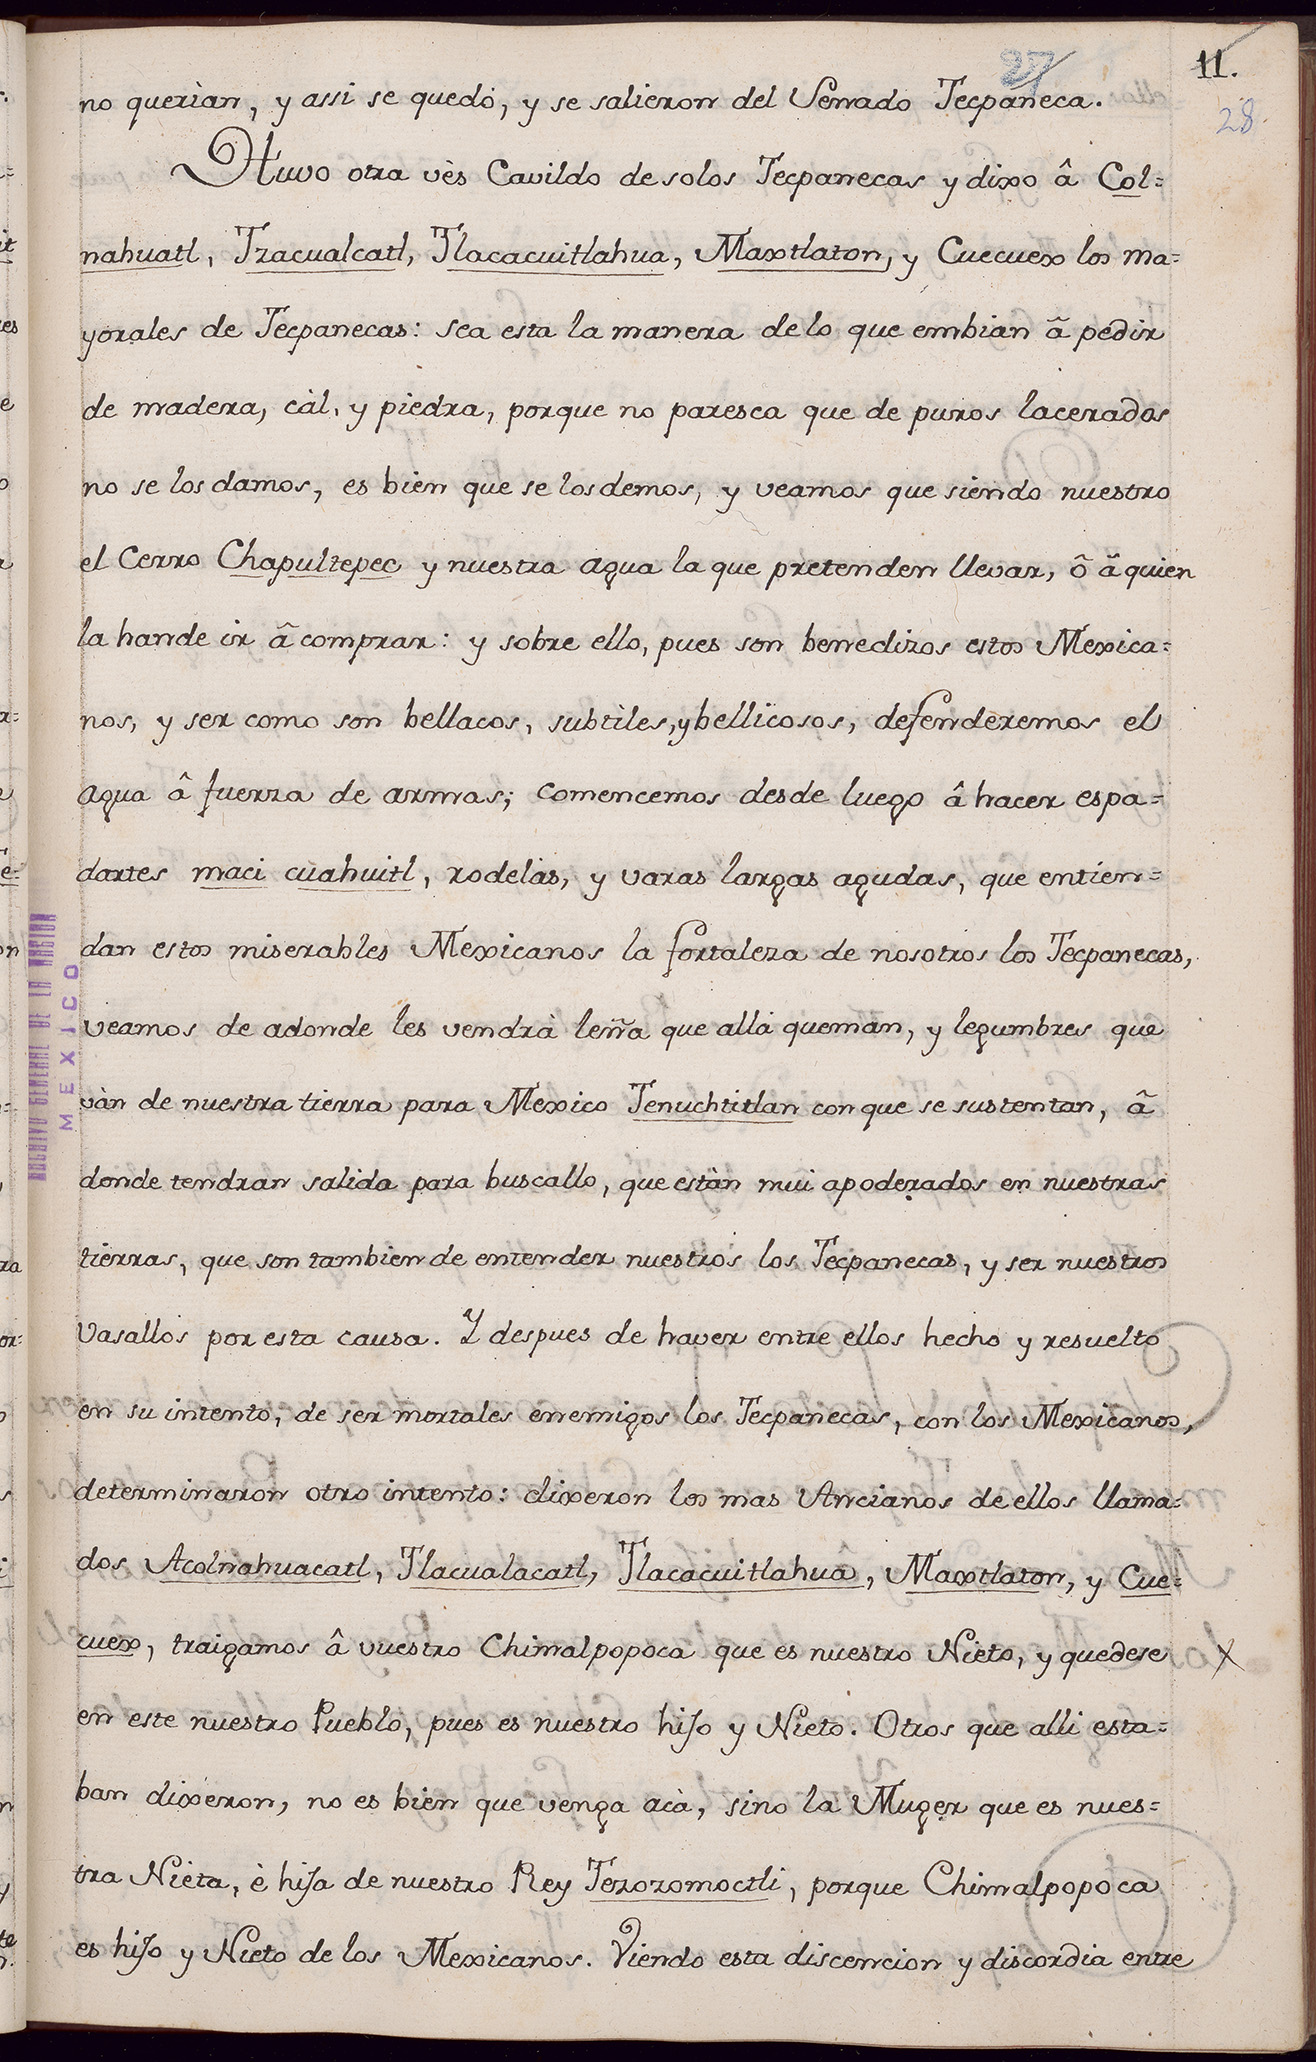 27
11.
28
no querian, y assi se quedó, y se salieron del Senado Tecpaneca.
Huvo otra vès Cavildo de solos Tecpanecas y dixo â Col=
nahuatl, Tzacualcatl, Tlacacuitlahua, Maxtlaton, y Cuecuex los ma=
yorales de Tecpanecas: sea esta la manera de lo que embian â pedir
de madera, càl, y piedra, porque no paresca que de puros lacerados
no se los damos, es bien que se los demos, y veamos que siendo nuestro
el Cerro Chapultepec y nuestra agua la que pretenden llevar, ô â quien
la hande ir â comprar: y sobre ello, pues son benedizos estos Mexica=
nos, y ser como son bellacos, subtiles, y bellicosos, defenderemos el
agua â fuerza de armas; comencemos desde luego â hacer espa=
dartes maci cuahuitl, rodelas, y varas largas agudas, que entien=
dan estos miserables Mexicanos la fortaleza de nosotros los Tecpanecas,
veamos de adonde les vendrà leña que allà queman, y legumbres que
vàn de nuestra tierra para Mexico Tenuchtitlan con que se sustentan, â
donde tendran salida para buscallo, que estàn mui apoderados en nuestras
tierras, que son tambien de entender nuestros los Tecpanecas, y ser nuestros
Vasallos por esta causa. Y despues de haver entre ellos hecho y resuelto
en su intento, de ser mortales enemigos los Tecpanecas, con los Mexicanos,
determinaron otro intento: dixeron los mas Ancianos de ellos llama=
dos Acolnahuacatl, Tlacualacatl, Tlacacuitlahua, Maxtlaton, y Cue=
cuex, traigamos â vuestro Chimalpopoca que es nuestro Nieto, y quedese X
en este nuestro Pueblo, pues es nuestro hijo y Nieto. Otros que alli esta=
ban dixeron, no es bien que venga acà, sino la Muger que es nues=
tra Nieta, è hija de nuestro Rey Tezozomoctli, porque Chimalpopoca
es hijo y Nieto de los Mexicanos. Viendo esta discencion y discordia entre
ARCHIVO GENERAL DE LA NACION
MEXICO